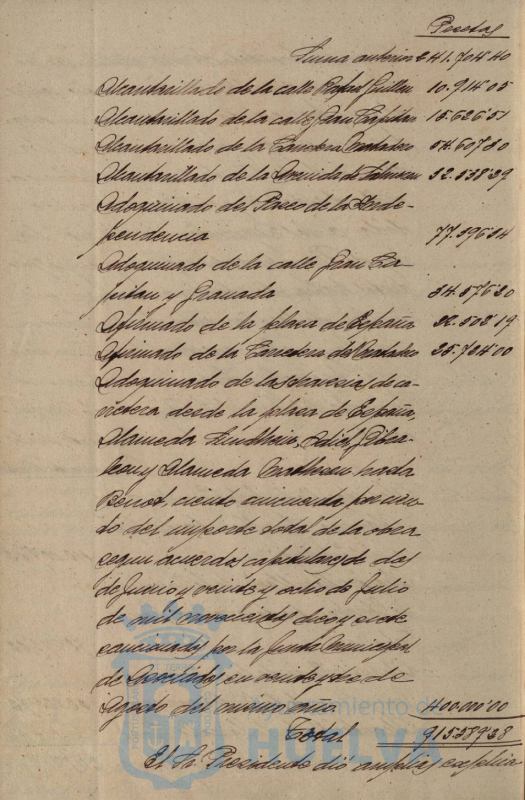 Pesetas
Suma anterior 241.704'40
Alcantarillado de la calle Rafael Guillen 10.914'05
Alcantarillado de la calle Gran Capitan 15.626'51
Alcantarillado de la Carretera 54.607'30
Alcantarillado de la Avenida de 32.538'39
Adoquinado del Paseo de la Inde-
pendencia 77.596'34
Adoquinado de la calle Gran Ca-
pitan y Granada 34.576'30
Afirmado de la plaza de España 22.508'19
Afirmado de la Carretera del 25.724'00
Adoquinado de las travesias de ca-
rretera desde la plaza de España,
Alameda Sundheim, Odiel, Gibra-
leon y Alameda hasta
ciento cincuenta por cien-
to del importe total de la obra
segun acuerdos capitulares de dos
de Junio y veinte y ocho de Julio
de mil novecientos diez y siete
sancionados por la Junta Municipal
de Asociados en veinte y de
Agosto del mismo año 400.000'00
Total 915.589'28
El Sr. Presidente dió amplias explica
Ayuntamiento de
HUELVA